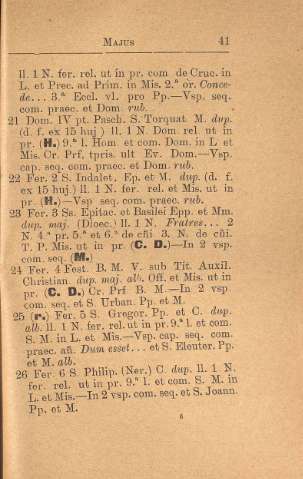 MAJUS 41
ll. 1 N. fer. rel. ut in pr. com de Cruc. in
L. et Prec. ad Prim. in Mis. 2.ª or. Conce-
de... 3.ª Eccl. vl. pro Pp.—Vsp. seq.
com. praec. et Dom. rub.
21 Dom. IV pt. Pasch. S. Torquat M. dup.
(d. f. ex 15 huj) ll. 1 N. Dom rel ut in
pr. (H.) 9.ª l. Hom et com. Dom. in L et
Mis. Cr. Prf, tpris. ult Ev. Dom.—Vsp.
cap. seq. com. praec. et Dom. rub.
22 Fer. 2 S. Indalet. Ep. et M. dup. (d. f.
ex 15 huj.) ll. 1 N. fer. rel et Mis. ut in
pr. (H.)—Vsp seq. com. praec. rub.
23 Fer. 3 Ss. Epitac. et Basilei Epp. et Mm.
dup. maj. (Dioec.) ll. 1 N. Fratres... 2
N. 4.ª pr. 5.ª et 6.ª de cñi 3. N. de cñi.
T. P. Mis. ut in pr (C. D.)—In 2 vsp.
com. seq. (M.)
24 Fer. 4 Fest. B. M. V. sub Tit. Auxil.
Christian dup. maj. alb. Off. et Mis. ut in
pr. (C. D.) Cr. Prf B. M.—In 2 vsp
com. seq. et S. Urban. Pp. et M.
25 (r.) Fer. 5 S. Gregor. Pp. et C. dup.
alb. ll. 1 N. fer. rel. ut in pr. 9.ª l. et com.
S. M. in L. et Mis.—Vsp. cap. seq. com.
praec. añ. Dum esset... et S. Eleuter. Pp.
et M. alb.
26 Fer. 6 S. Philip. (Ner.) C. dup. ll. 1 N.
fer. rel. ut in pr. 9.ª l. et com. S. M. in
L. et Mis.—In 2 vsp. com. seq. et S. Joann.
Pp. et M.
6